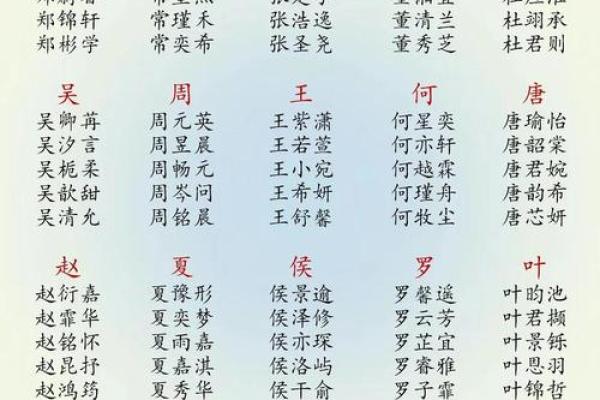 郑锦轩 常瑾禾 张浩逸 董清兰 杜翊承
郑彬学 常奕希 张圣尧 董秀芝 杜君则
吴 周 王 何 唐
吴卿苒 周元英 王紫潇 何星奕 唐瑜怡
吴汐言 周昱晨 王若萱 何亦轩 唐韶棠
吴栀柔 周畅元 王小宛 何越霖 唐君婉
吴歆甜 周岑问 王希妍 何瑾舟 唐韵希
吴清允 周铭晨 王舒馨 何牧尘 唐芯妍
赵 夏 侯 罗 叶
赵衍嘉 夏豫形 侯景逾 罗馨遥 叶昀池
赵霏华 夏奕梦 侯泽修 罗云芳 叶君撷
赵铭怀 夏雨嘉 侯亦琛 罗芷宜 叶景铄
赵昆抒 夏嘉淇 侯洛屿 罗睿雅 叶思羽
赵鸿筠 夏秀华 侯干俞 罗子霏 叶锦哲